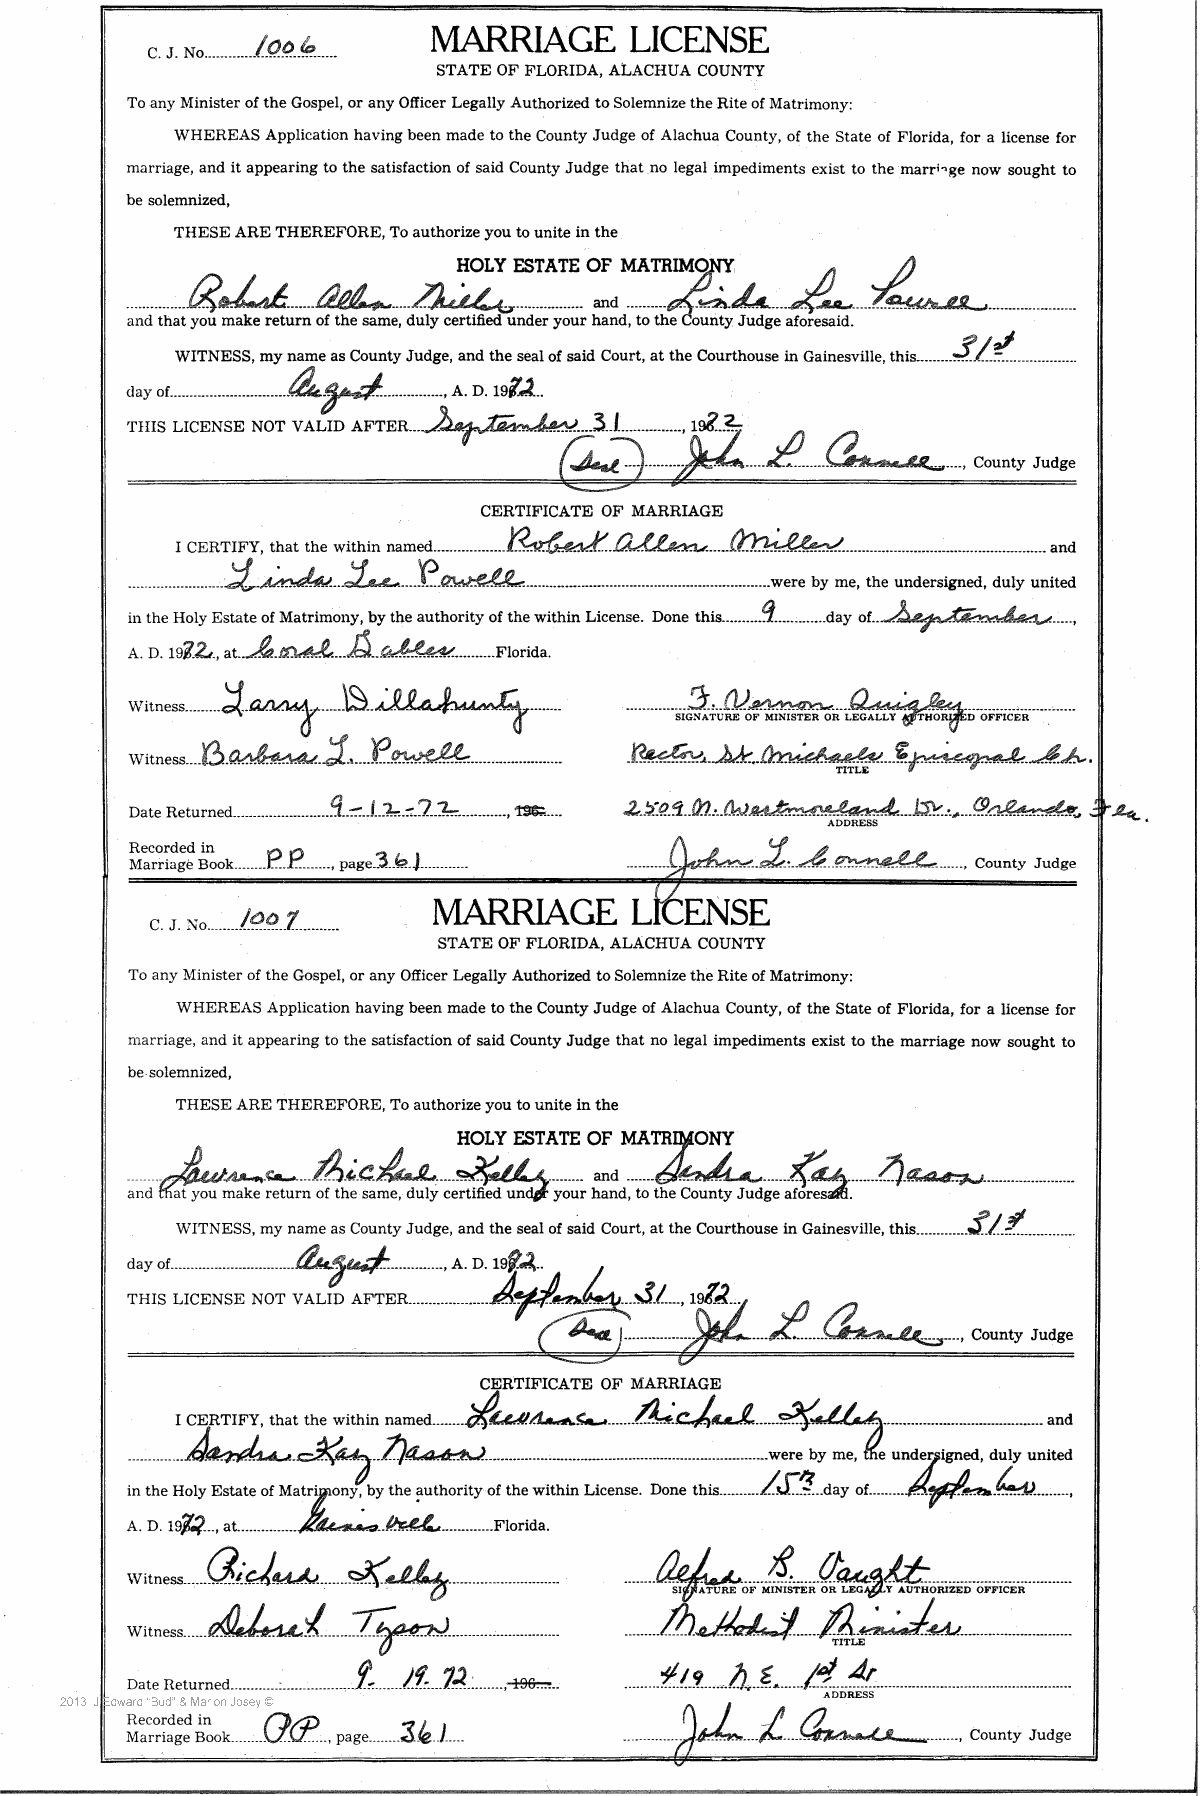 C. J. No. 1006
MARRIAGE LICENSE
STATE OF FLORIDA, ALACHUA COUNTY
To any Minister of the Gospel, or any Officer Legally Authorized to Solemnize the Rite of Matrimony:
WHEREAS Application having been made to the County Judge of Alachua County, of the State of Florida, for a license for
marriage, and it appearing to the satisfaction of said County Judge that no legal impediments exist to the marriage now sought to
be solemnized,
THESE ARE THEREFORE, To authorize you to unite in the
HOLY ESTATE OF MATRIMONY
Robert Allen Miller and Linda Lee Powell
and that you make return of the same, duly certified under your hand, to the County Judge aforesaid.
WITNESS, my name as County Judge, and the seal of said Court, at the Courthouse in Gainesville, this 31st
day of August, A. D. 1972
THIS LICENSE NOT VALID AFTER September 31, 1972
(Seal) John L. Connell, County Judge
CERTIFICATE OF MARRIAGE
I CERTIFY, that the within named Robert Allen Miller and
Linda Lee Powell were by me, the undersigned, duly united
in the Holy Estate of Matrimony, by the authority of the within License. Done this 9 day of September,
A. D. 1972, at Coral Gables Florida.
Witness Larry Dillahunty F. Vernon Quigley
SIGNATURE OF MINISTER OR LEGALLY AUTHORIZED OFFICER
Witness Barbara L. Powell Rector, St Michaels Episcopal Ch.
TITLE
Date Returned 9-12-72, 196 2509 N. Westmoreland Dr., Orlando, Fla.
ADDRESS
Recorded in
Marriage Book PP, page 361 John L. Connell, County Judge
C. J. No. 1007
MARRIAGE LICENSE
STATE OF FLORIDA, ALACHUA COUNTY
To any Minister of the Gospel, or any Officer Legally Authorized to Solemnize the Rite of Matrimony:
WHEREAS Application having been made to the County Judge of Alachua County, of the State of Florida, for a license for
marriage, and it appearing to the satisfaction of said County Judge that no legal impediments exist to the marriage now sought to
be solemnized,
THESE ARE THEREFORE, To authorize you to unite in the
HOLY ESTATE OF MATRIMONY
Lawrence Michael Kelley and Sandra Kay Nason
and that you make return of the same, duly certified under your hand, to the County Judge aforesaid.
WITNESS, my name as County Judge, and the seal of said Court, at the Courthouse in Gainesville, this 31st
day of August, A. D. 1972
THIS LICENSE NOT VALID AFTER September 31, 1972
(Seal) John L. Connell, County Judge
CERTIFICATE OF MARRIAGE
I CERTIFY, that the within named Lawrence Michael Kelley and
Sandra Kay Nason were by me, the undersigned, duly united
in the Holy Estate of Matrimony, by the authority of the within License. Done this 15th day of September,
A. D. 1972, at Gainesville Florida.
Witness Richard Kelley Alfred B. Vaught
SIGNATURE OF MINISTER OR LEGALLY AUTHORIZED OFFICER
Witness Deborah Tyson Methodist Minister
TITLE
Date Returned 9. 19. 72, 196 419 N.E. 1st St
ADDRESS
2013 J Edward "Bud" & Marion Josey ©
Recorded in
Marriage Book PP, page 361 John L Connell, County Judge